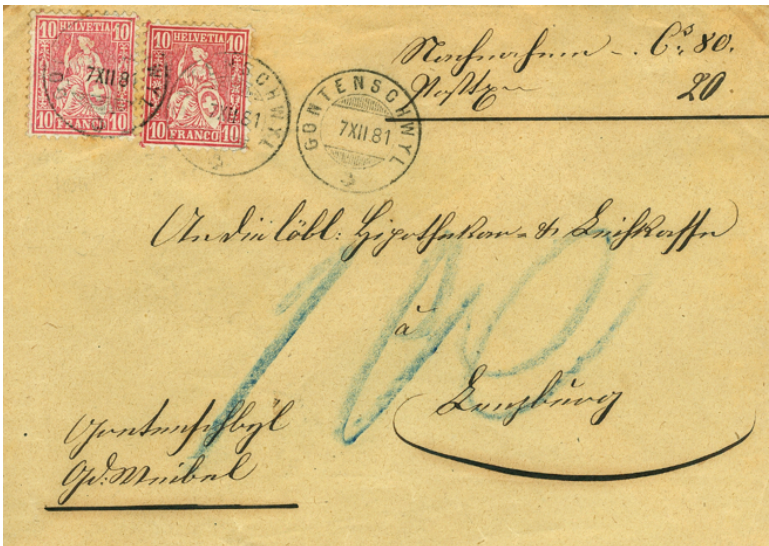 10 HELVETIA 10
10 FRANCO 10
10 HELVETIA 10
10 FRANCO 10
7XII.81
SCHWYL
XII.81
GONTENSCHWYL
7XII.81
Nachnahme - Cs. 80.
20
An die löbl: Hipothekar- & Leihkasse
à
Lenzburg
100
Gontenschwyl
Gd: Weibel